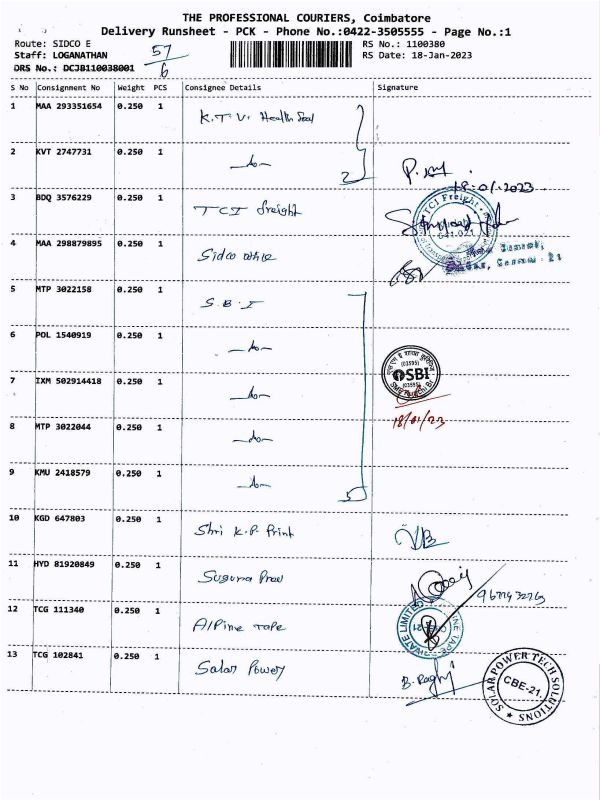 THE PROFESSIONAL COURIERS, Coimbatore
Delivery Runsheet - PCK - Phone No.:0422-3505555 - Page No.:1
Route: SIDCO E
RS No.: 1100380
Staff: LOGANATHAN
RS Date: 18-Jan-2023
DRS No.: DCJB110038001
57
6
S No Consignment No Weight PCS Consignee Details Signature
1 MAA 293351654 0.250 1 K.T.V. Health
2 KVT 2747731 0.250 1 -do-
2
18-01-2023
3 BDQ 3576229 0.250 1 TCI freight
TCI Freight
641 021
4 MAA 298879895 0.250 1 Sidco
5 MTP 3022158 0.250 1 S.B.I
6 POL 1540919 0.250 1 -do-
(03595)
SBI
7 IXM 502914418 0.250 1 -do-
18/01/23
8 MTP 3022044 0.250 1 -do-
9 KMU 2418579 0.250 1 -do-
5
10 KGD 647803 0.250 1 Shri K.P. Print
11 HYD 81920849 0.250 1 Suguna
12 TCG 111340 0.250 1 Alpine Tape
13 TCG 102841 0.250 1 Solar Power
B. Raghu
SOLAR POWER TECH SOLUTIONS
CBE-21.